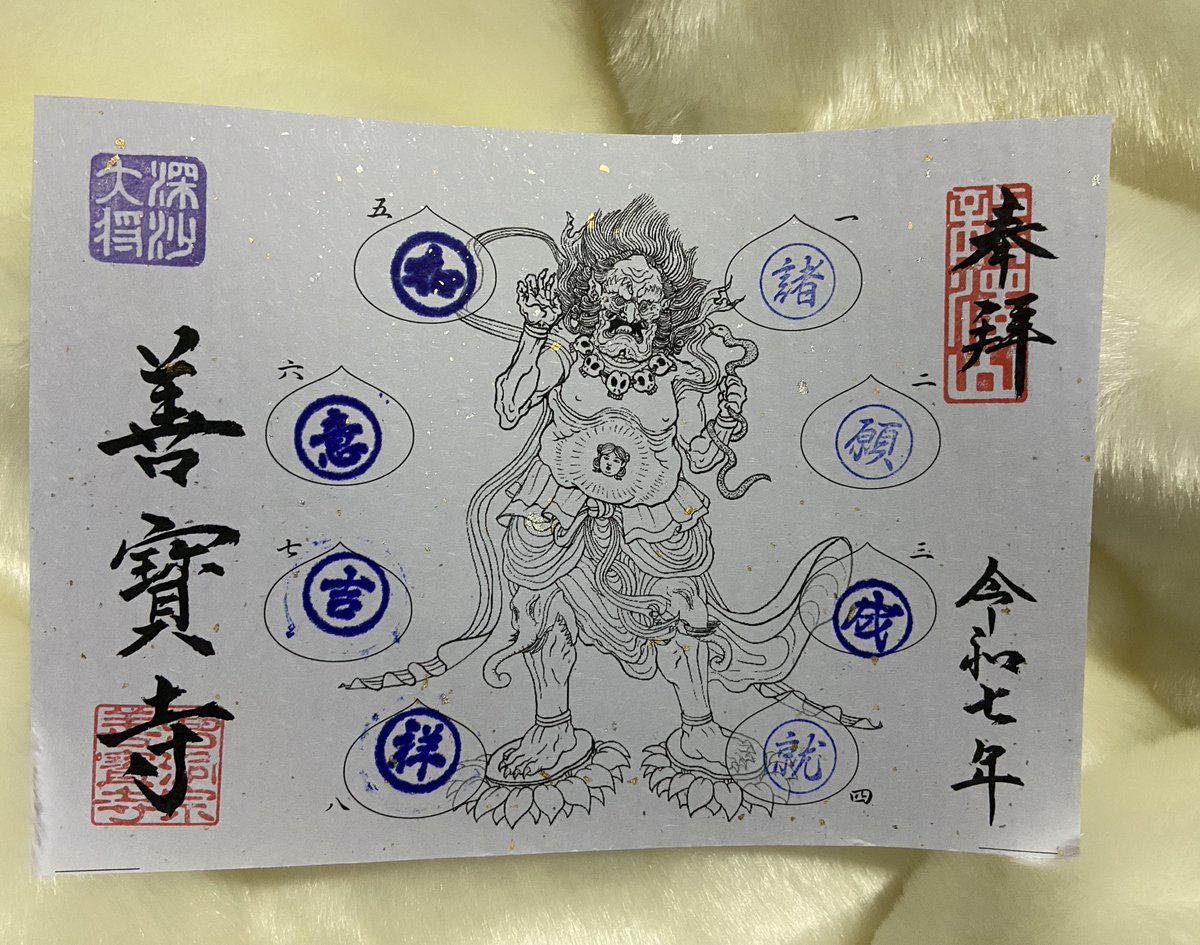 奉拝
令和七年
一
諸
二
願
三
成
四
就
五
如
六
意
七
吉
八
祥
深沙
大将
善寶寺